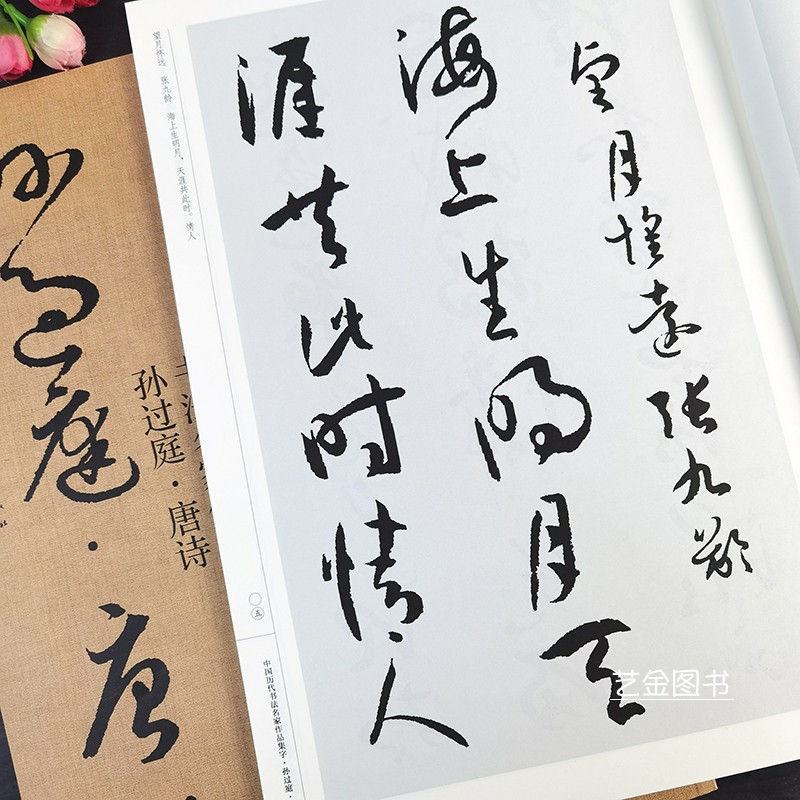 望月怀远 张九龄
海上生明月天
涯共此时情人
望月怀远 张九龄 海上生明月，天涯共此时。情人
〇五
中国历代书法名家作品集字·孙过庭·
孙过庭·唐
孙过庭·唐诗
艺金图书